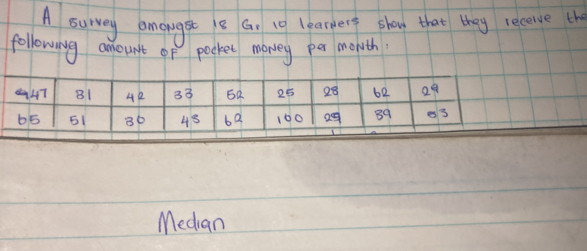 A survey amongst 18 Gr 10 learners show that they receive the
following amount of pocket money per month:
47 31 42 33 52 25 28 62 29
65 51 30 43 62 100 29 39 03
Median